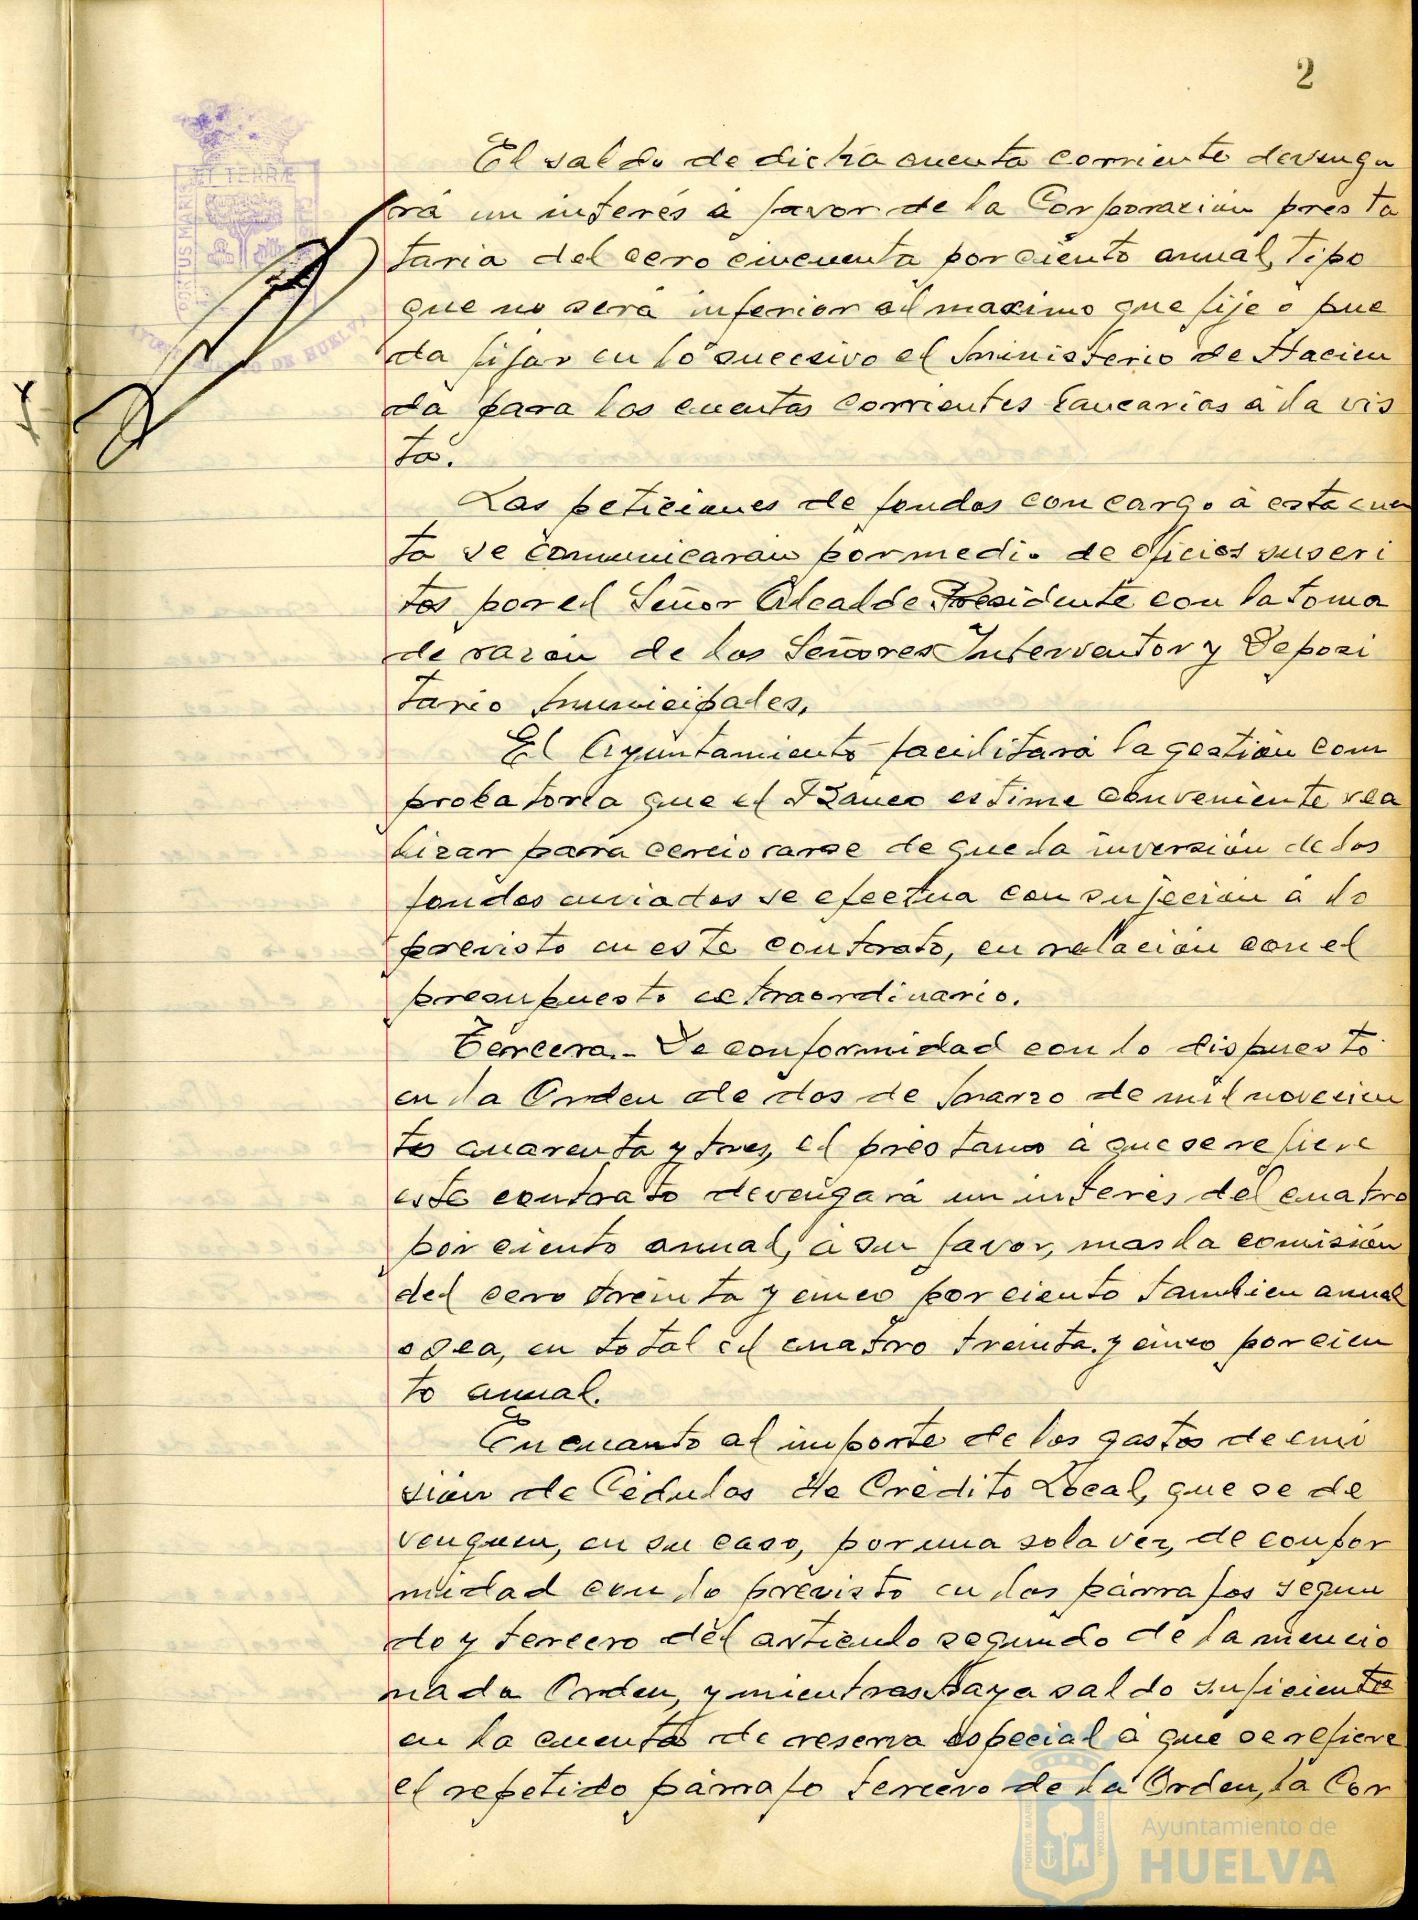 2
El saldo de dicha cuenta corriente devenga
rá un interés á favor de la Corporación presta
taria del cero cincuenta por ciento anual, tipo
que no será inferior al maximo que fije ó pue
da fijar en lo sucesivo el Ministerio de Hacien
da para las cuentas corrientes bancarias á la vis
ta.
Las peticiones de fondos con cargo á esta cuen
ta se comunicarán por medio de oficios suscri
tos por el Señor Alcalde Presidente con la toma
de razón de los Señores Interventor y Deposi
tario Municipales.
El Ayuntamiento facilitará la gestión com
probatoria que el Banco estime conveniente rea
lizar para cerciorarse de que la inversión de los
fondos enviados se efectua con sujeción á lo
previsto en este contrato, en relación con el
presupuesto extraordinario.
Tercera.- De conformidad con lo dispuesto
en la Orden de dos de Marzo de mil novecien
tos cuarenta y tres, el préstamo á que se refiere
este contrato devengará un interés del cuatro
por ciento anual, á su favor, mas la comisión
del cero treinta y cinco por ciento tambien anual
o sea, en total el cuatro treinta y cinco por cien
to anual.
En cuanto al importe de los gastos de emi
sión de Cédulas de Crédito Local, que se de
venguen, en su caso, por una sola vez, de confor
midad con lo previsto en los párrafos segun
do y tercero del artículo segundo de la mencio
nada Orden, y mientras haya saldo suficiente
en la cuenta de reserva especial á que se refiere
el repetido párrafo tercero de la Orden, la Cor
ET TERRÆ
PORTUS MARIS
AYUNTAMIENTO DE HUELVA
PORTUS MARIS
CUSTODIA
Ayuntamiento de
HUELVA